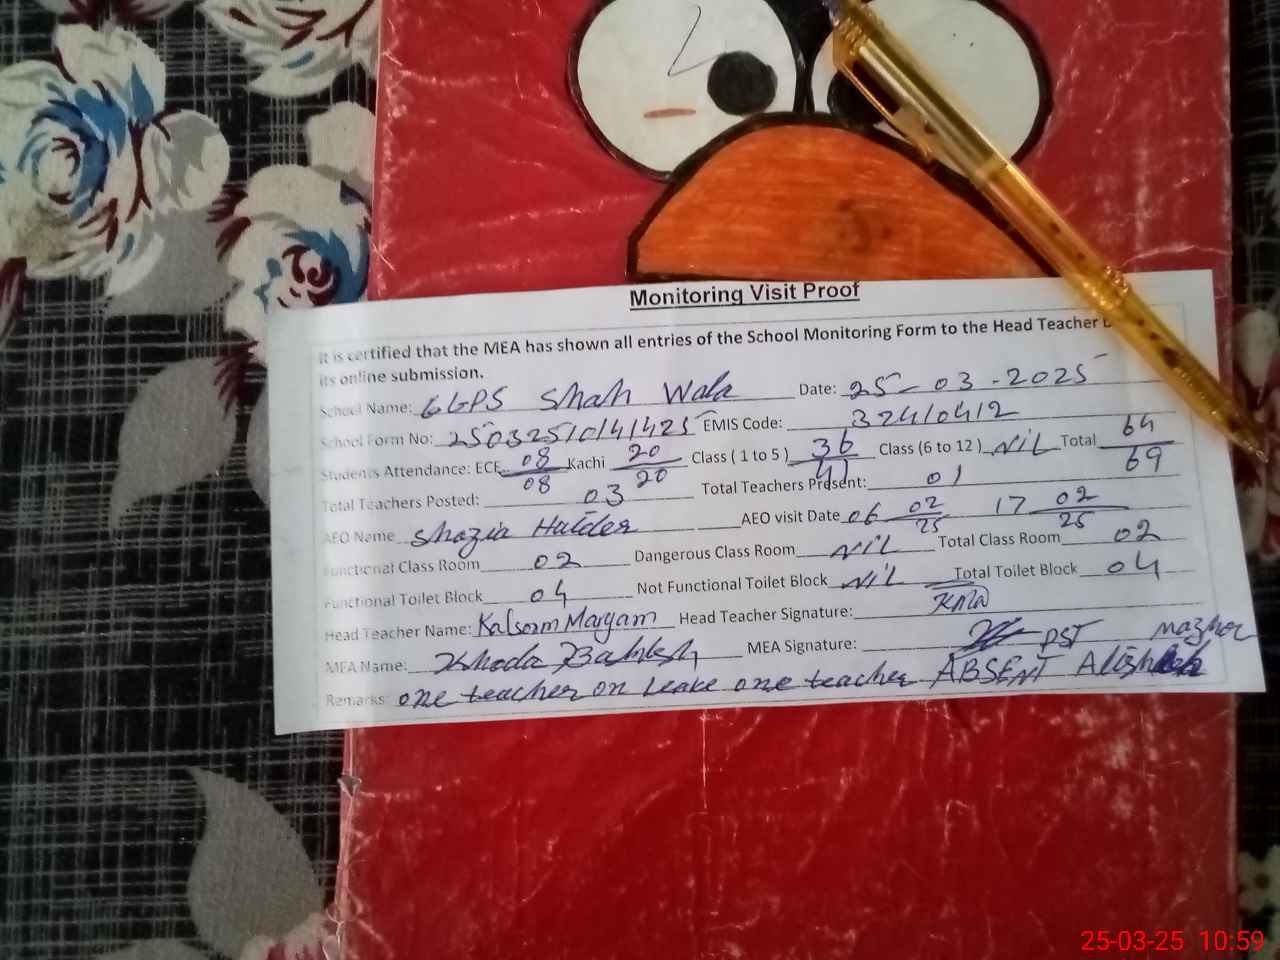 Monitoring Visit Proof
It is certified that the MEA has shown all entries of the School Monitoring Form to the Head Teacher
its online submission.
School Name: GGPS Shah Wala Date: 25-03-2025
School Form No: 25032510141425 EMIS Code: 32410412
Students Attendance: ECE 08/08 Kachi 20/20 Class ( 1 to 5 ) 36/41 Class (6 to 12 ) NIL Total 64/69
Total Teachers Posted: 03 Total Teachers Present: 01
AEO Name Shazia Haider AEO visit Date 06 02/25 17 02/25
Functional Class Room 02 Dangerous Class Room NIL Total Class Room 02
Functional Toilet Block 04 Not Functional Toilet Block NIL Total Toilet Block 04
Head Teacher Name: Kalsom Maryam Head Teacher Signature: KMD
MEA Name: Khoda Bakhsh MEA Signature: PST
Remarks: one teacher on Leake one teacher ABSENT
25-03-25 10:59